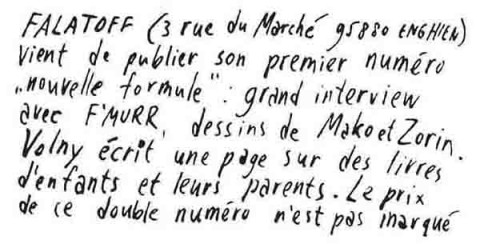 FALATOFF (3 rue du Marché 95880 ENGHIEN)
vient de publier son premier numéro
„nouvelle formule": grand interview
avec F'MURR, dessins de Mako et Zorin.
Volny écrit une page sur des livres
d'enfants et leurs parents. Le prix
de ce double numéro n'est pas marqué